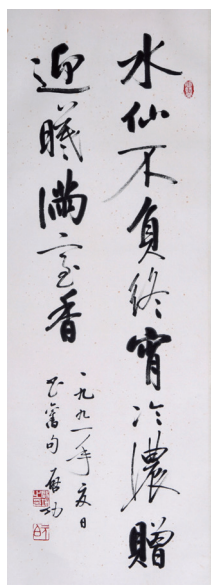 水仙不負終宵冷濃贈
迎曦滿室香
一九九一年夏日
書舊句 啟功